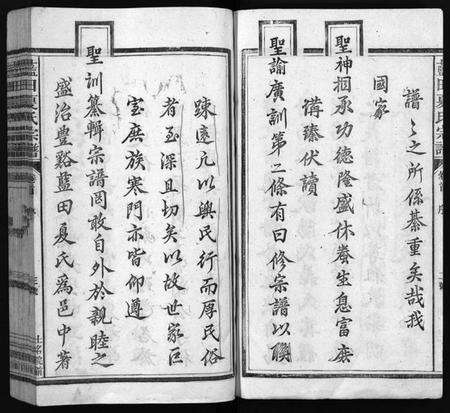 譜之之所係綦重矣哉我
國家
聖神相承功德隆盛休養生息富庶
溝臻伏讀
聖諭廣訓第二條有曰修宗譜以聯
疎遠凡以興民行而厚民俗
者至深且切矣以故世家巨
室庶族寒門亦皆仰遵
聖訓纂輯宗譜罔敢自外於親睦之
盛治豐谿藍田夏氏為邑中著
藍田夏氏宗譜
藍田夏氏宗譜